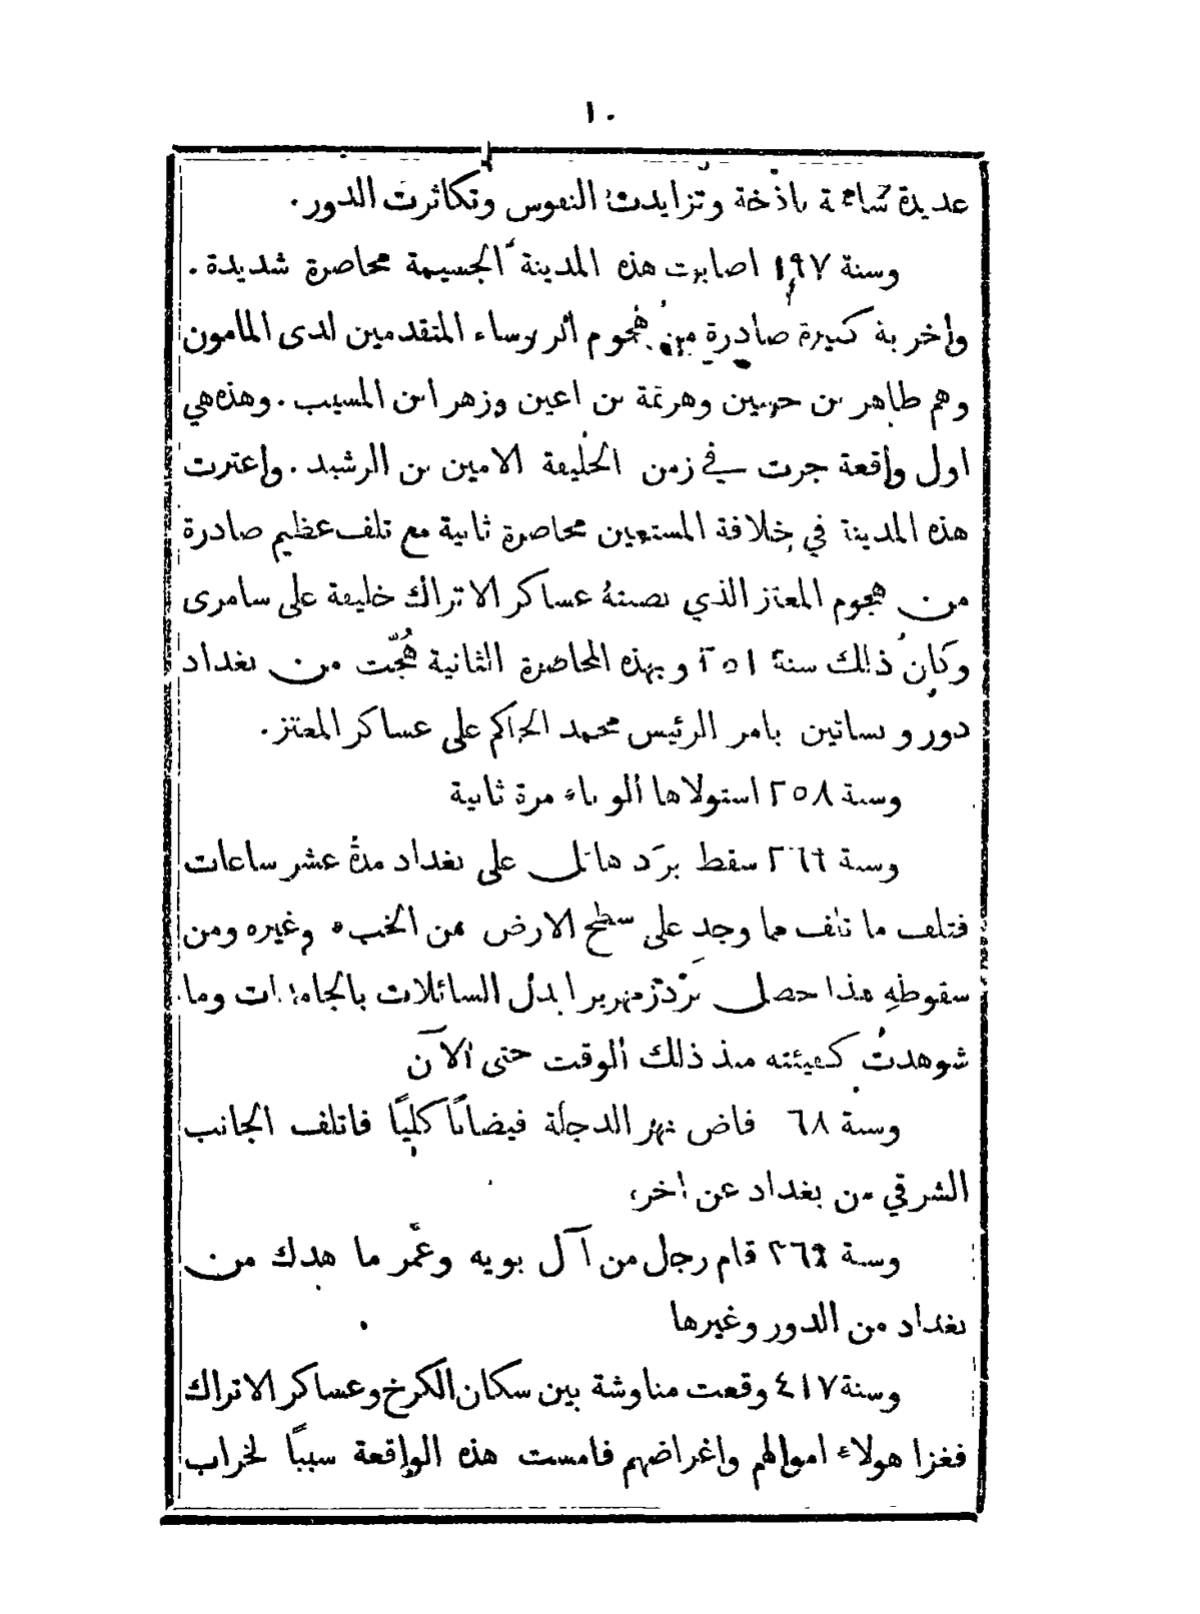 ١٠
عديدة شامخة باذخة وتزايدت النفوس وتكاثرت الدور.
وسنة ١٩٧ اصابرت هذه المدينة الجسيمة محاصرة شديدة.
واخربة كبيرة صادرة من هجوم الروساء المتقدمين لدى المامون
وهم طاهر بن حسين وهرثمة بن اعين وزهر ابن المسيب. وهذه هي
اول واقعة جرت في زمن الخليفة الامين بن الرشيد. واعترت
هذه المدينة في خلافة المستعين محاصرة ثانية مع تلف عظيم صادرة
من هجوم المعتز الذي نصبتهُ عساكر الاتراك خليفة على سامرى
وكان ذلك سنة ٢٥١ وبهذه المحاصرة الثانية هُجّت من بغداد
دور وبساتين بامر الرئيس محمد الحاكم على عساكر المعتز.
وسنة ٢٥٨ استولاها الوباء مرة ثانية
وسنة ٢٦٦ سقط برَد هائل على بغداد مدة عشر ساعات
فتلف ما تلف مما وجد على سطح الارض من الخضرة وغيره ومن
سقوطهِ هذا حصل بَرْد زمهريرا بدل السائلات بالجامدات وما
شوهدت كهيئته منذ ذلك الوقت حتى الآن
وسنة ٦٨ فاض نهر الدجلة فيضانًا كليًا فاتلف الجانب
الشرقي من بغداد عن اخره
وسنة ٣٦٩ قام رجل من آل بويه وعمَّر ما هدك من
بغداد من الدور وغيرها
وسنة ٤١٧ وقعت مناوشة بين سكان الكرخ وعساكر الاتراك
فغزا هولاء اموالهم واغراضهم فامست هذه الواقعة سببًا لخراب